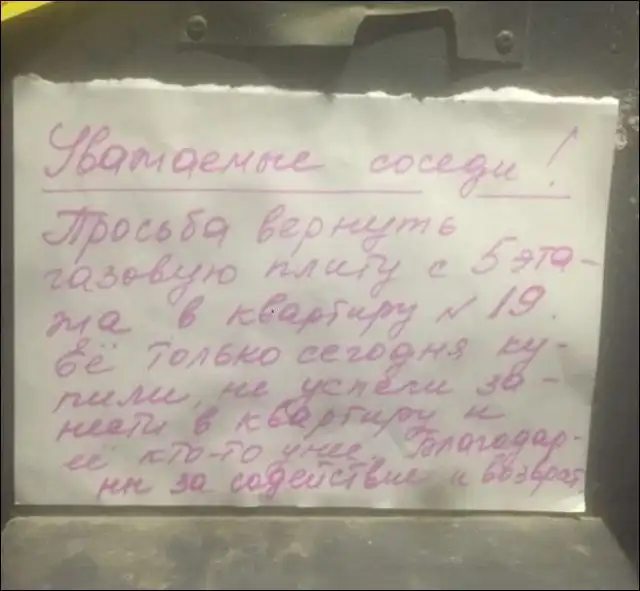 Уважаемые соседи!
Просьба вернуть
газовую плиту с 5 эта-
жа в квартиру № 19.
Её только сегодня ку-
пили, не успели за-
нести в квартиру и
её кто-то унес. Благодар-
ны за содействие и возврат